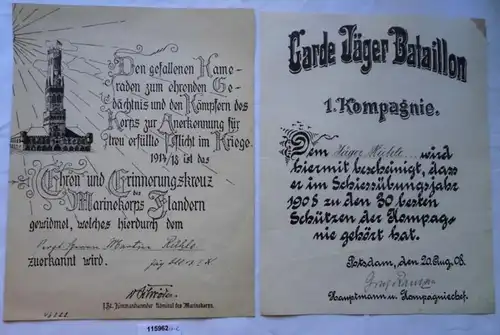 Den gefallenen Kame-
raden zum ehrenden Ge-
dächtnis und den Kämpfern des
Korps zur Anerkennung für
treu erfüllte Pflicht im Kriege
1914/18 ist das
Ehren und Erinnerungskreuz
des
Marinekorps Flandern
gewidmet, welches hierdurch dem
zuerkannt wird.
Kommandierender Admiral des Marinekorps.
Garde Jäger Bataillon
1. Kompagnie.
Dem Jäger wird
hiermit bescheinigt, dass
er im Schiessübungsjahr
1908 zu den 30 besten
Schützen der Kompag-
nie gehört hat.
Potsdam, den 20. Aug. 08.
Hauptmann u. Kompagniechef.
115962